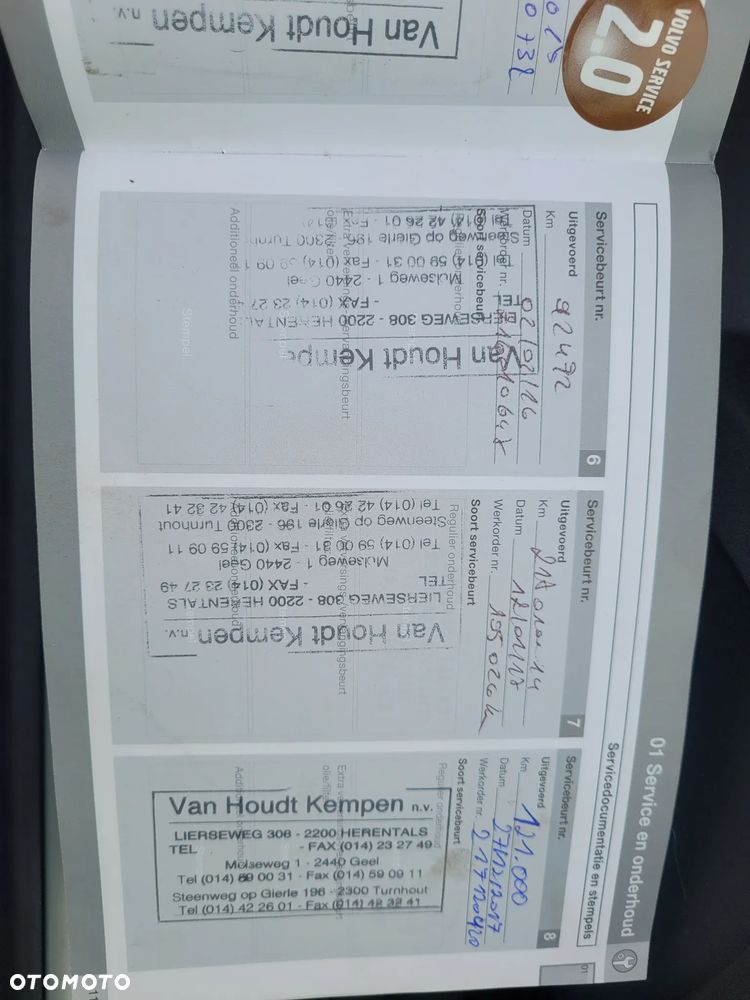 VOLVO SERVICE
2.0
Van Houdt Kempen
n.v.
01 Service en onderhoud
01
Servicedocumentatie en stempels
Servicebeurt nr.
6
Uitgevoerd
Km
92472
Datum
02/02/16
Werkorder nr.
Soort servicebeurt
Additioneel onderhoud
Stempel
Van Houdt Kempen
LIERSEWEG 308 - 2200 HERENTALS
TEL - FAX (014) 23 27
Molseweg 1 - 2440 Geel
Tel (014) 59 00 31 - Fax (014) 59 09 1
Steenweg op Gierle 196 - 2300 Turnh
Tel (014) 42 26 01 - Fax (014)
Servicebeurt nr.
7
Uitgevoerd
Km
Datum
12/01/17
Werkorder nr.
Soort servicebeurt
Regulier onderhoud
Van Houdt Kempen n.v.
LIERSEWEG 308 - 2200 HERENTALS
TEL - FAX (014) 23 27 49
Molseweg 1 - 2440 Geel
Tel (014) 59 00 31 - Fax (014) 59 09 11
Steenweg op Gierle 196 - 2300 Turnhout
Tel (014) 42 26 01 - Fax (014) 42 32 41
Servicebeurt nr.
8
Uitgevoerd
Km
121.000
Datum
27/12/2017
Werkorder nr.
Soort servicebeurt
Regulier onderhoud
Van Houdt Kempen n.v.
LIERSEWEG 308 - 2200 HERENTALS
TEL - FAX (014) 23 27 49
Molseweg 1 - 2440 Geel
Tel (014) 59 00 31 - Fax (014) 59 09 11
Steenweg op Gierle 196 - 2300 Turnhout
Tel (014) 42 26 01 - Fax (014) 42 32 41
OTOMOTO